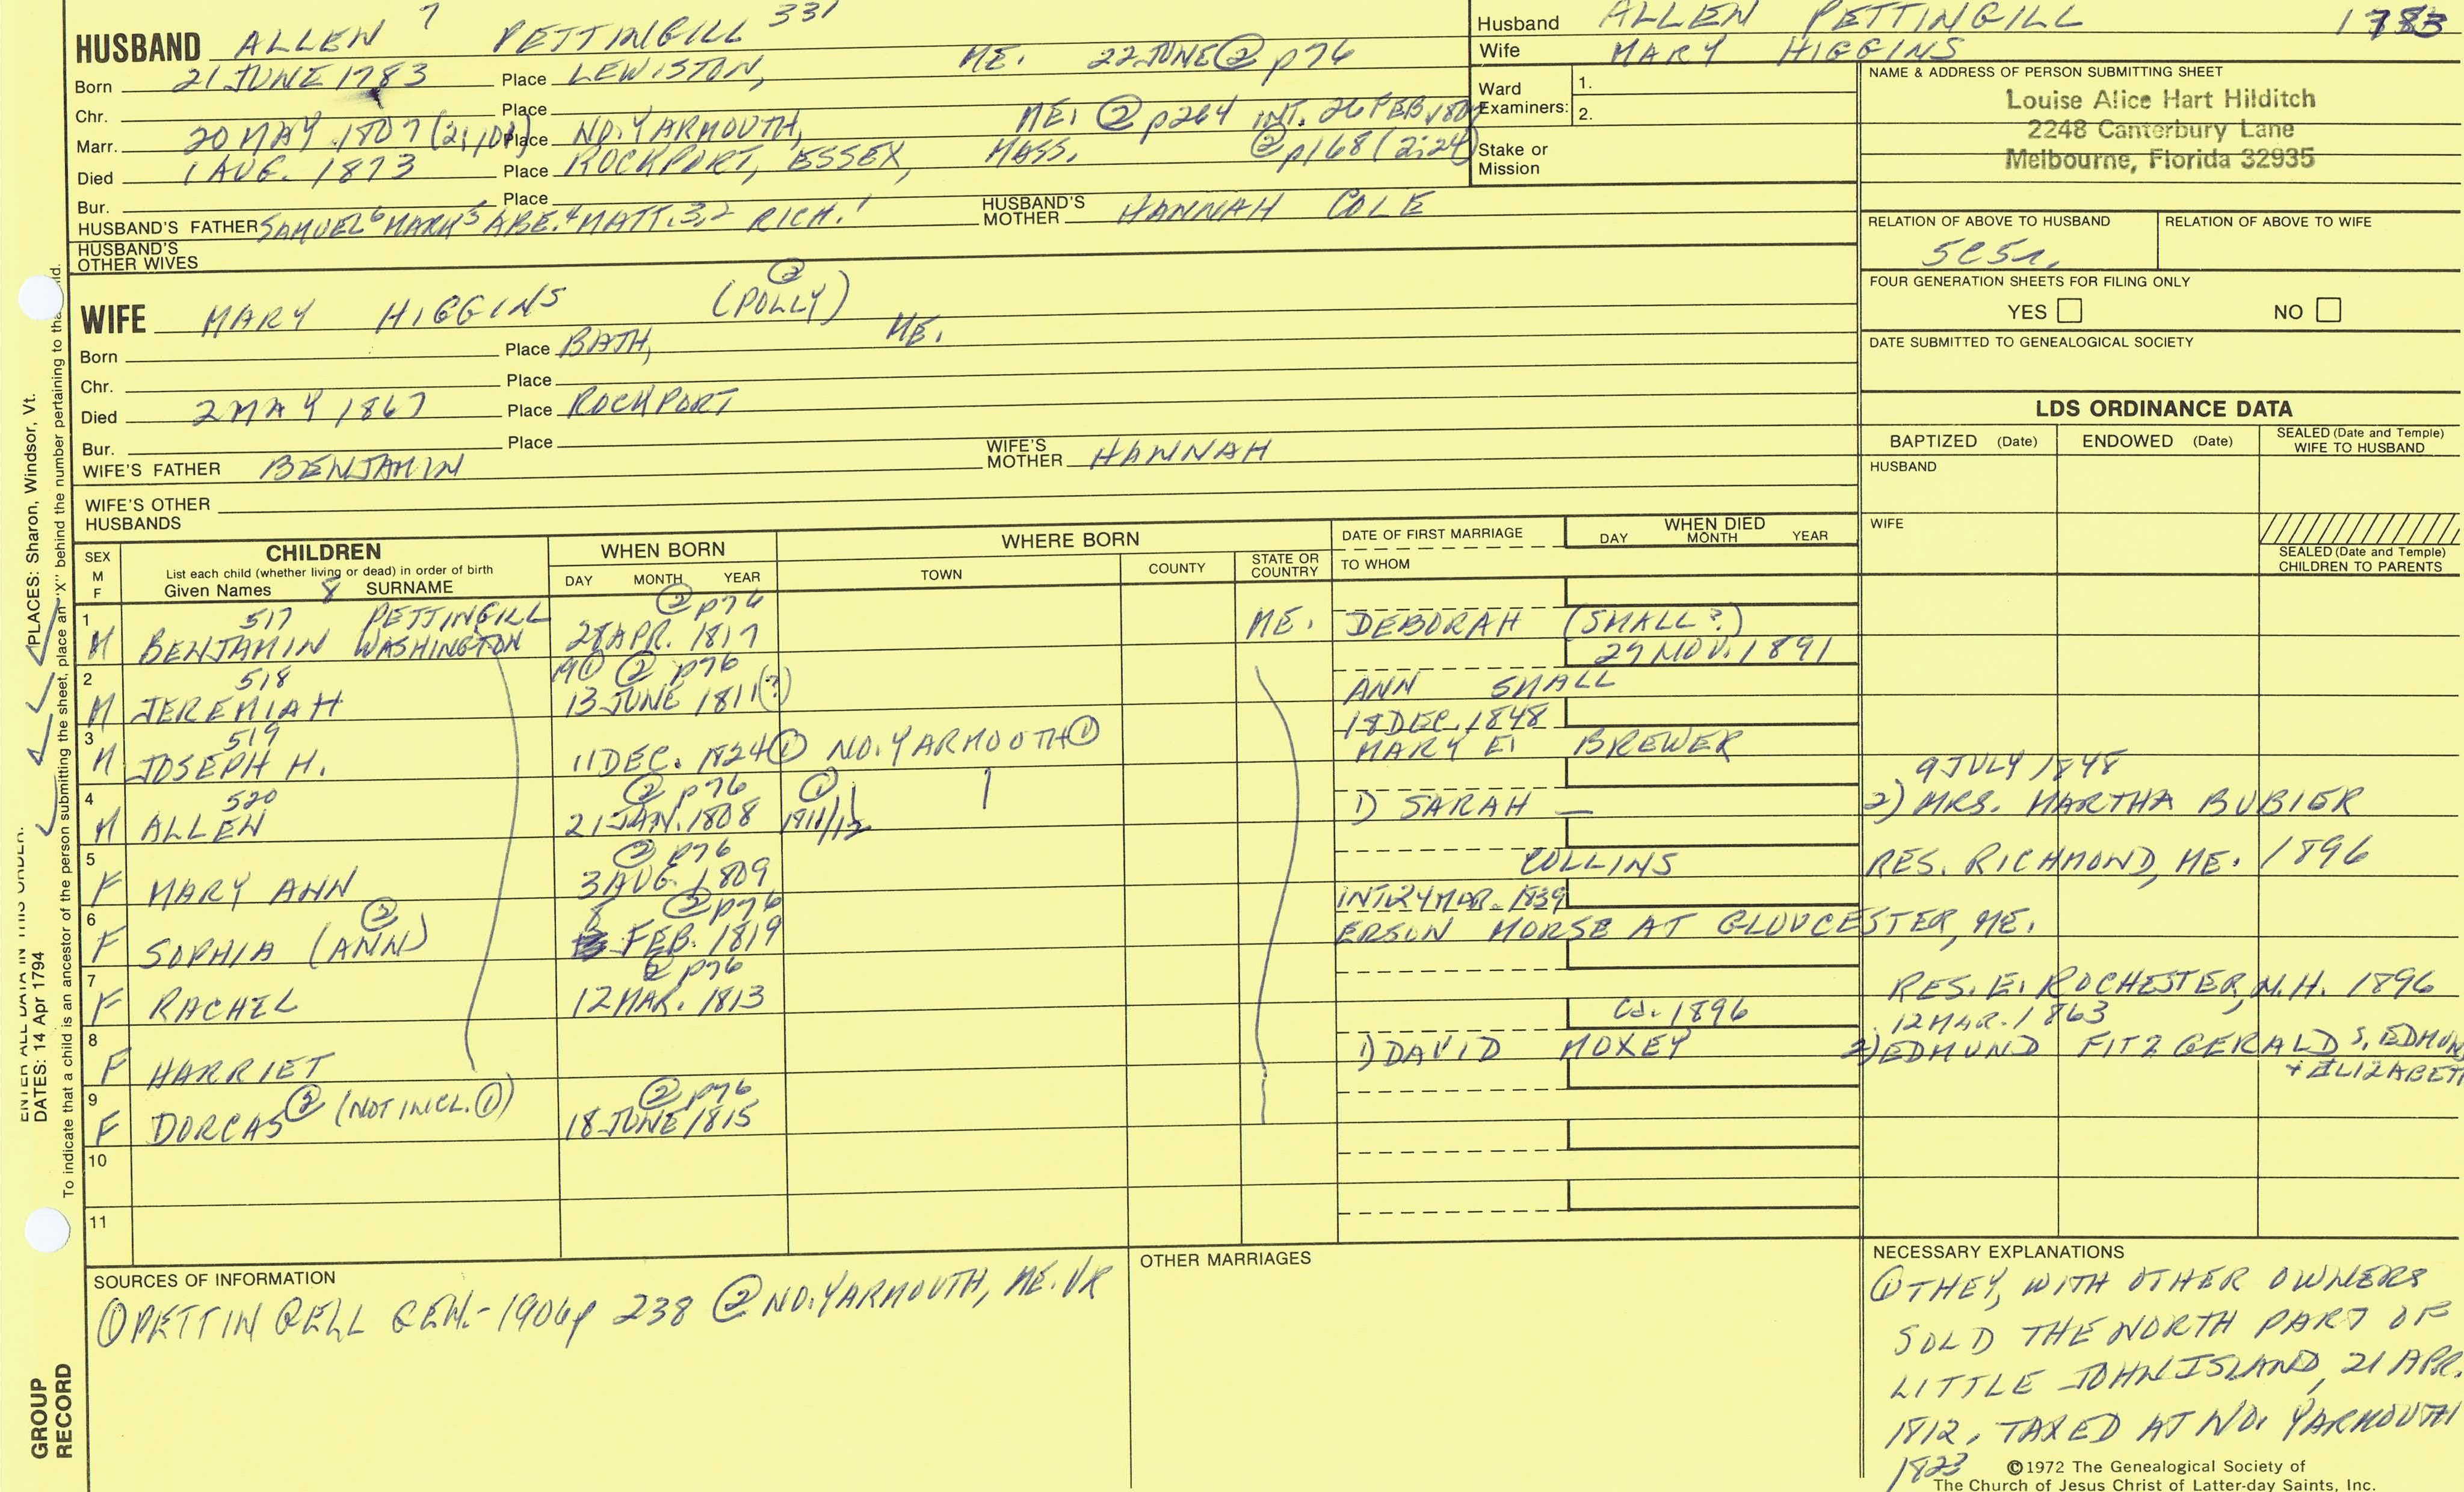 HUSBAND ALLEN 7 PETTINGILL 331
Born 21 JUNE 1783 Place LEWISTON, ME. 22 JUNE ② p76
Chr. Place
Marr. 20 MAY 1807 Place NO. YARMOUTH, ME. ② p264 INT. 26 FEB.
Died 1 AUG. 1873 Place ROCKPORT, ESSEX, MASS. ② p168 (2:24)
Bur. Place
HUSBAND'S FATHER SAMUEL 6 MARK 5 ABE. 4 MATT. 3,2 RICH. 1 HUSBAND'S MOTHER HANNAH COLE
HUSBAND'S OTHER WIVES
Husband ALLEN PETTINGILL 1783
Wife MARY HIGGINS
Ward Examiners: 1.
2.
Stake or Mission
NAME & ADDRESS OF PERSON SUBMITTING SHEET
Louise Alice Hart Hilditch
2248 Canterbury Lane
Melbourne, Florida 32935
RELATION OF ABOVE TO HUSBAND RELATION OF ABOVE TO WIFE
5C5r.
FOUR GENERATION SHEETS FOR FILING ONLY
YES NO
DATE SUBMITTED TO GENEALOGICAL SOCIETY
WIFE MARY HIGGINS (POLLY) ②
Born Place BATH, ME.
Chr. Place
Died 2 MAY 1867 Place ROCKPORT
Bur. Place
WIFE'S FATHER BENJAMIN WIFE'S MOTHER HANNAH
WIFE'S OTHER HUSBANDS
LDS ORDINANCE DATA
BAPTIZED (Date) ENDOWED (Date) SEALED (Date and Temple) WIFE TO HUSBAND
HUSBAND
WIFE
SEALED (Date and Temple) CHILDREN TO PARENTS
SEX M F
CHILDREN
List each child (whether living or dead) in order of birth
Given Names 8 SURNAME
WHEN BORN
DAY MONTH YEAR
WHERE BORN
TOWN COUNTY STATE OR COUNTRY
DATE OF FIRST MARRIAGE
TO WHOM
WHEN DIED
DAY MONTH YEAR
1 517 PETTINGILL ② p76
M BENJAMIN WASHINGTON 28 APR. 1817 ME. DEBORAH (SMALL?)
29 NOV. 1891
2 518 ② p76
M JEREMIAH 13 JUNE 1811(?) ANN SMALL
3 519 18 DEC. 1848
M JOSEPH H. 11 DEC. 1824 ① NO. YARMOUTH ① MARY E. BREWER
4 520 ② p76 ① 9 JULY 1848
M ALLEN 21 JAN. 1808 1811/12 1) SARAH — 2) MRS. MARTHA BUBIER
5 ② p76
F MARY ANN 3 AUG. 1809 COLLINS RES. RICHMOND, ME. 1896
6 ② ② p76 INT. 24 MAR. 1839
F SOPHIA (ANN) 8 FEB. 1819 ERSON MORSE AT GLOUCESTER, ME.
7 ② p76
F RACHEL 12 MAR. 1813 RES. E. ROCHESTER, N.H. 1896
8 Cd. 1896 12 MAR. 1863
F HARRIET 1) DAVID MOXEY 2) EDMUND FITZ GERALD S. EDMUN
+ ELIZABET
9 ② p76
F DORCAS ② (NOT INCL. ①) 18 JUNE 1815
10
11
SOURCES OF INFORMATION
① PETTINGELL GEN.-1906 p 238 ② NO. YARMOUTH, ME. VR
OTHER MARRIAGES
NECESSARY EXPLANATIONS
① THEY, WITH OTHER OWNERS
SOLD THE NORTH PART OF
LITTLE JOHN ISLAND, 21 APR.
1812, TAXED AT NO. YARMOUTH
1823
©1972 The Genealogical Society of
The Church of Jesus Christ of Latter-day Saints, Inc.
PLACES: Sharon, Windsor, Vt.
DATES: 14 Apr 1794
To indicate that a child is an ancestor of the person submitting the sheet, place an "X" behind the number pertaining to
GROUP RECORD